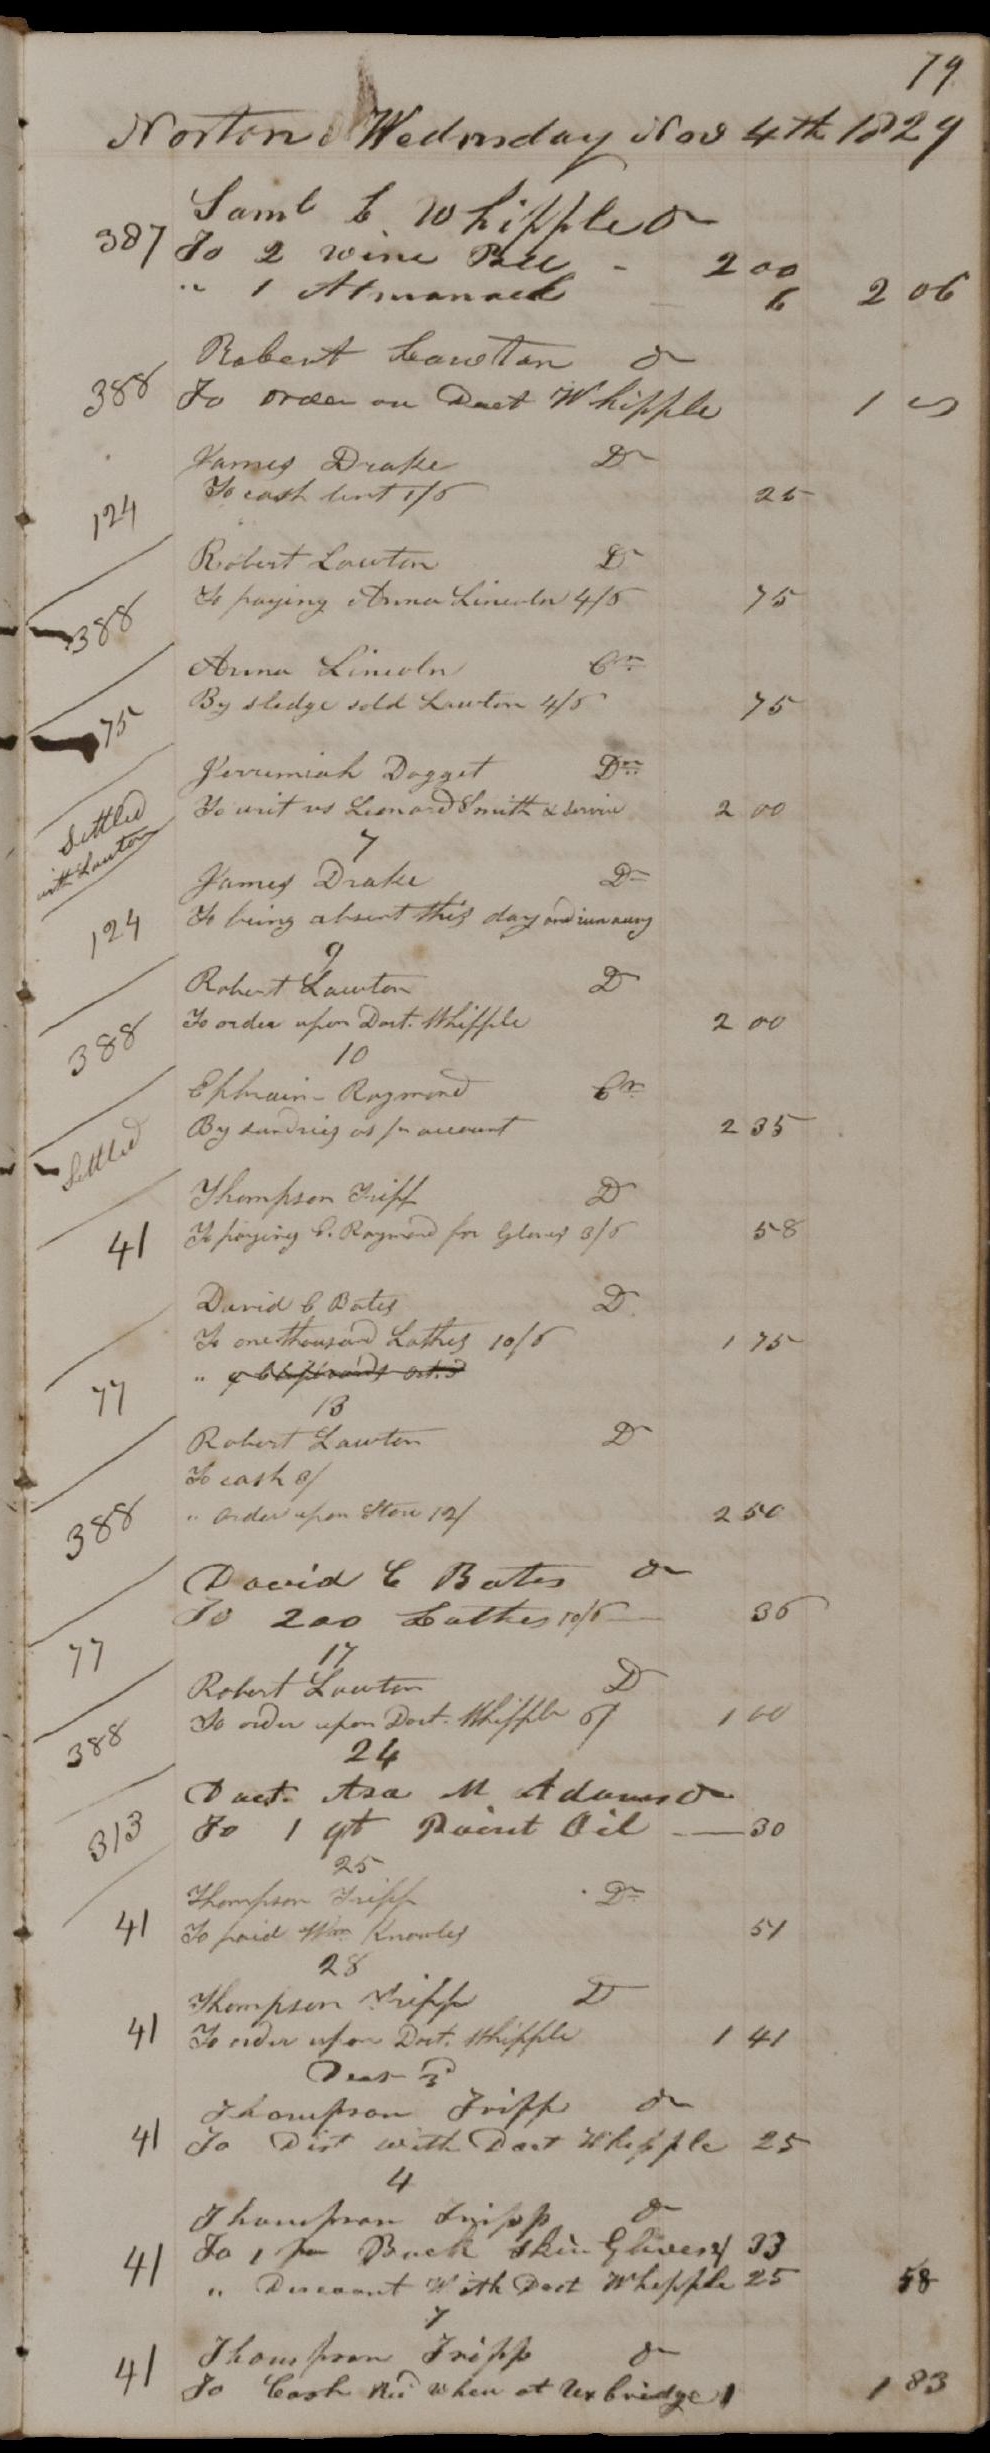 79
Norton Wednesday Nov 4th 1829
Saml C Whipple Dr
387 To 2 wine Bll - 2 00
" 1 Almanack 6 2 06
Robert Lawton Dr
388 To order on Doct Whipple 1
James Drake Dr
124 To cash lent 1/6 25
Robert Lawton Dr
388 To paying Anna Lincoln 4/6 75
Anna Lincoln Cr
75 By sledge sold Lawton 4/6 75
Jerremiah Dogget Dr
Settled with Lawton To writ vs Leonard Smith & service 2 00
7
James Drake Dr
124 To being absent this day and run away
9
Robert Lawton Dr
388 To order upon Doct. Whipple 2 00
10
Ephraim Raymond Cr
Settled By sundries as pr account 2 35
Thompson Tripp Dr
41 To paying E. Raymond for Gloves 3/6 58
David C Bates Dr
77 To one thousand Lathes 10/6 1 75
"
13
Robert Lawton Dr
To cash 3/
388 " order upon Store 12/ 2 50
David C Bates Dr
77 To 200 Lathes 10/6 36
17
Robert Lawton Dr
388 To order upon Doct. Whipple 6/ 1 00
24
Doct. Asa M Adams Dr
313 To 1 qt Paint Oil 30
25
Thompson Tripp Dr
41 To paid Wm Knowles 51
28
Thompson Tripp Dr
41 To order upon Doct. Whipple 1 41
Decr 3
Thompson Tripp Dr
41 To Dist with Doct Whipple 25
4
Thompson Tripp Dr
41 To 1 pr Buck Skin Gloves 33
" Discount With Doct Whipple 25 58
7
Thompson Tripp Dr
41 To Cash Recd when at Uxbridge 1 83